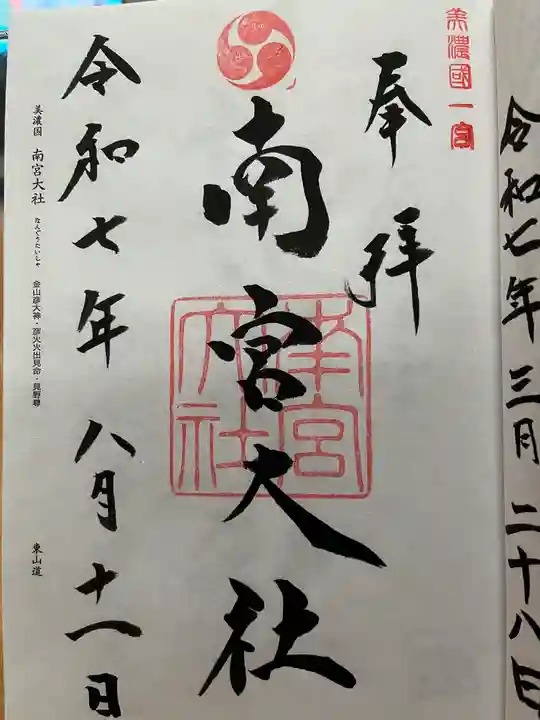 令和七年三月二十八日
美濃國一宮
奉拝
南宮大社
南宮大社
令和七年八月十一日
美濃国 南宮大社 なんぐうたいしゃ 金山彦大神・彦火火出見命・見野尊 東山道